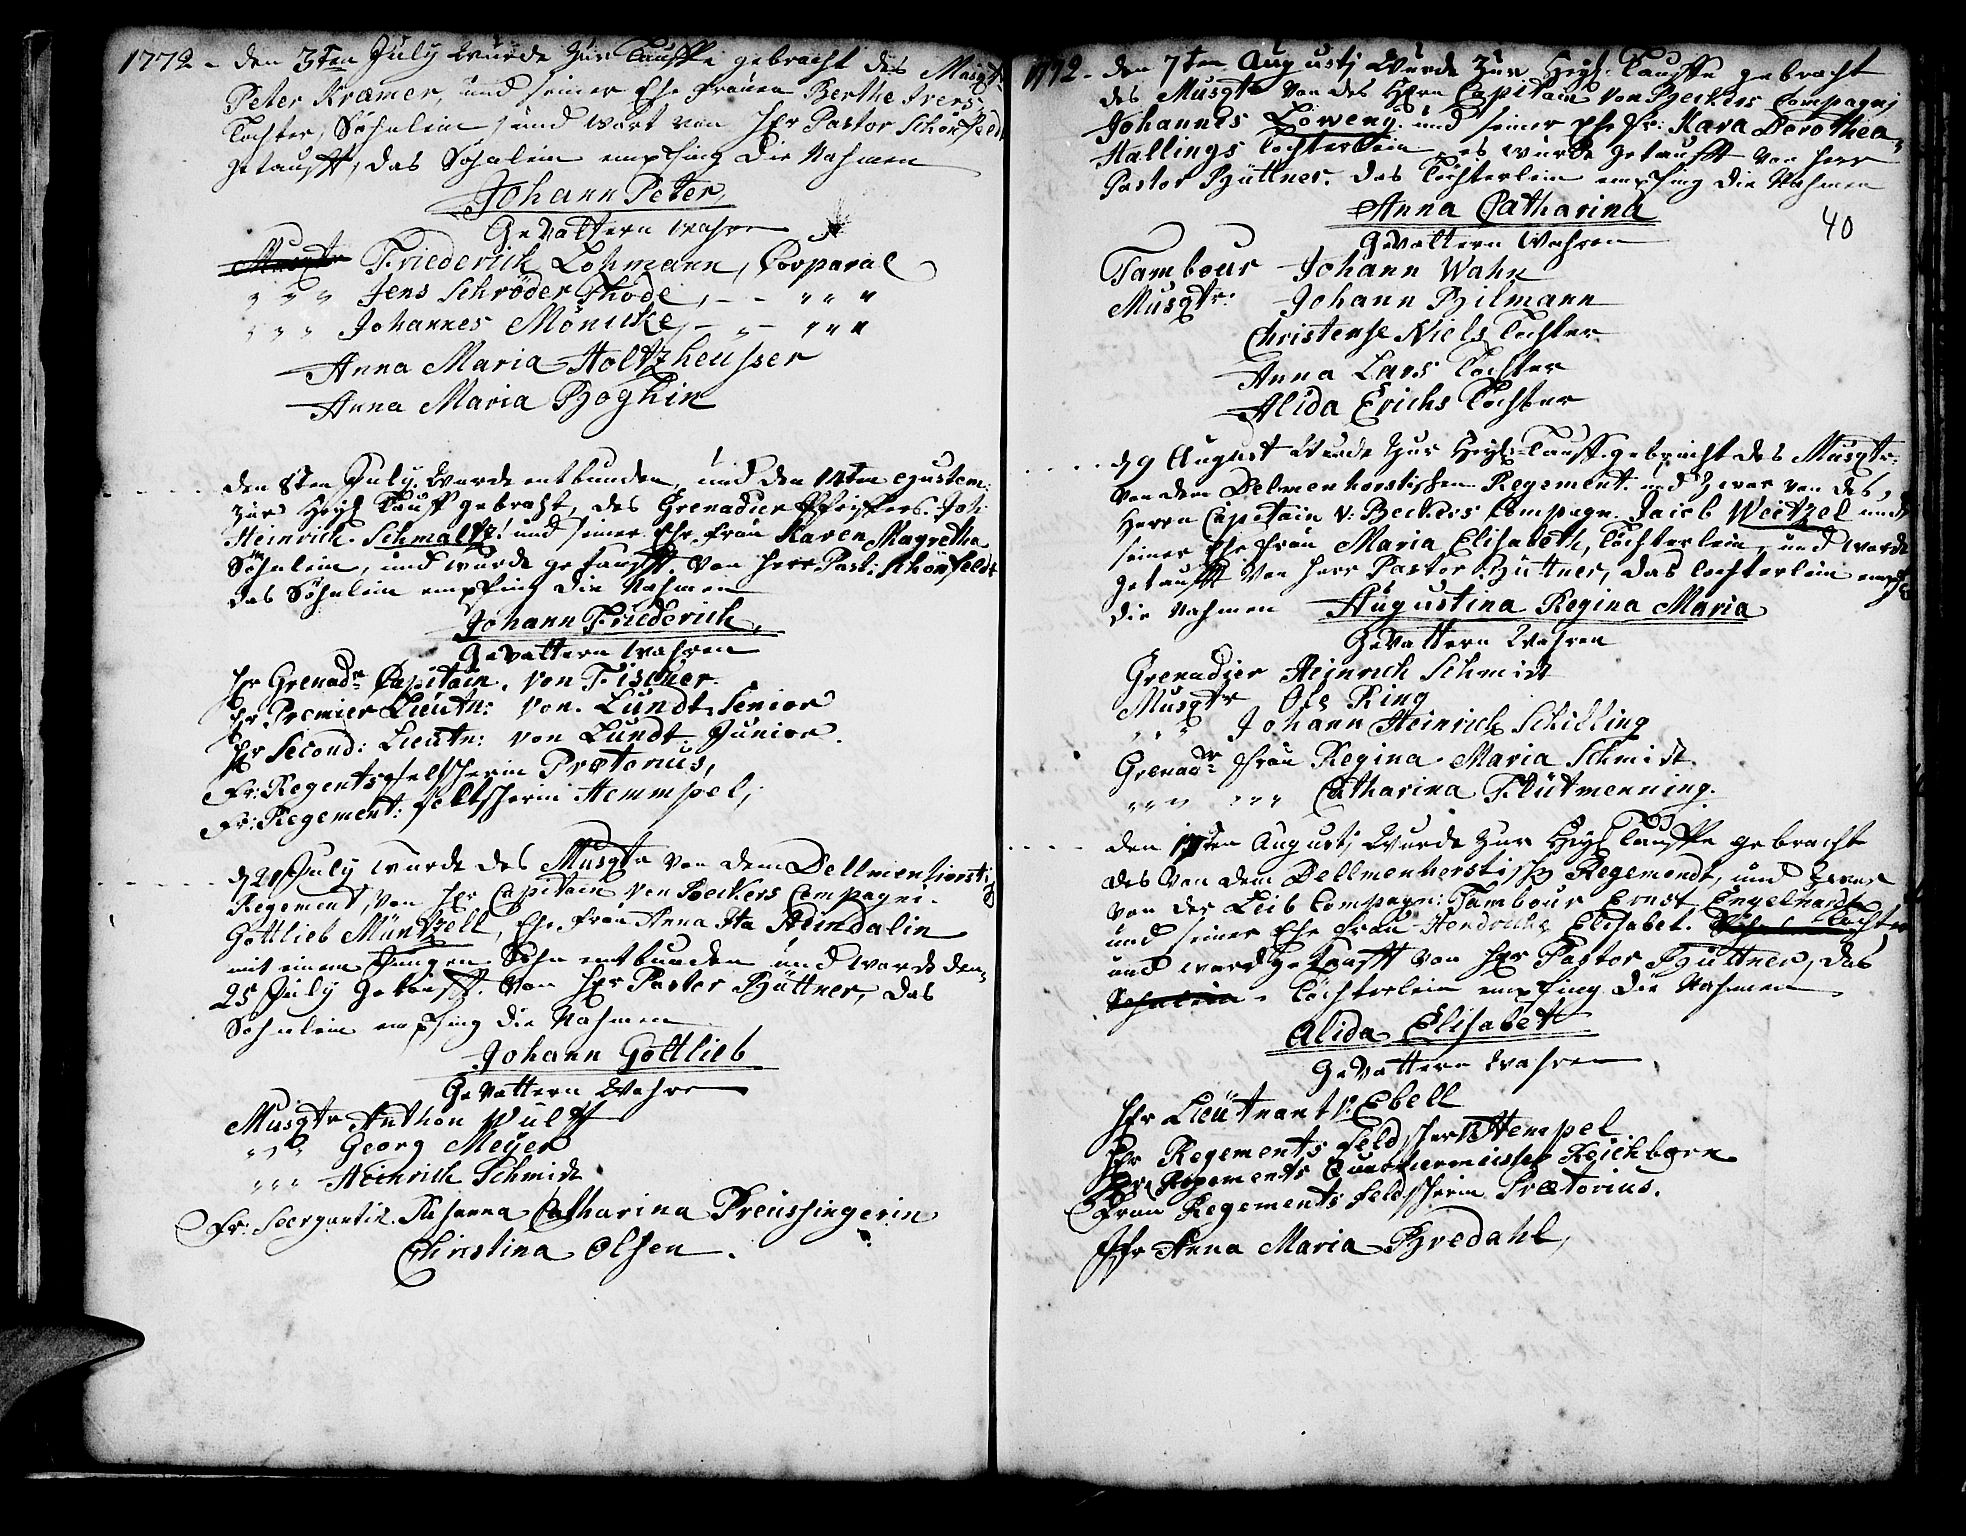 1772 - den 3ten July wurde zur Tauffe gebracht des Musqt:
Peter Kræmer, und seiner Ehe frauen Berthe Ivers
Tochter, Söhnlein, und wart von Hr Pastor Schönfeldt
getaufft, das Söhnlein empfing die Nahmen
Johann Peter,
Gevattern wahren
Musqtr Friederich Lohmann, Corporal
" " " Jens Schröder Rhode, - - " " "
" " " Johannes Mönicke, - " - " " "
Anna Maria Holtzheusser
Anna Maria Boghin
den 8ten July wurde entbunden, und den 14ten ejustem
zur Heyl Tauff gebracht, des Grenadier Pfeiffers Joh:
Heinrich Schmaltz! und seiner Ehe frau Karen Magretha
Söhnlein, und wurde getaufft von Herr Past: Schönfeldt
das Söhnlein empfing die Nahmen
Johann Friederich,
Gevattern wahren
Hr Grenadr Capitain, von Fischer.
Hr Premier Lieutn: von Lundt Senior
Hr Second: Lieutn: von Lundt Junior.
Fr: Regents feltscherin Prætorius,
Fr: Regement: feltscherin Hemmpel,
d 21 July wurde des Musqtr von dem Dellmenhorstig
Regement, von Hr Capitain von Beckers Compagni.
Gottlieb Müntzell, Ehe frau Anna Ita Hindalin
mit einem jungen Sohn entbunden und wurde den
25 July getaufft von Hr Pastor Büttner, das
Söhnlein empfing die Nahmen
Johann Gottlieb
Gevattern wahren
Musqtr Anthon Wulff
" " " Georg Meyer
" " " Heinrich Schmidt
Fr: Sergantin Susanna Catharina Preussingerin
Christina Olsen.
1772 - den 7ten Augustj wurde zur Heyl: Tauffe gebracht
des Musqtr von des Herrn Capitain von Beckers Compagnj
Johannes Löweny und seiner Ehe fr: Kara Dorothea
Hallings Tochterlein, es wurde getaufft von Herr
Pastor Büttner. das Töchterlein empfing die Nahmen
Anna Catharina
40
Gevattern wahren
Tambour Johann Wahn
Musqtr: Johann Bilmann
Christense Niels Tochter
Anna Lars Tochter
Alida Erichs Tochter
d 9 August wurde zur Heyl: Tauff gebracht des Musqtr:
von dem Delmenhorstischen Regement und zwar von des
Herrn Capitain v: Beckers Compagn. Jacob Weitzel und
seiner Ehe frau Maria Elisabeth, Töchterlein, und wurde
getaufft von Herr Pastor Büttner, das Töchterlein empfing
die Nahmen Augustina Regina Maria
Gevattern wahren
Grenadier Heinrich Schmidt
Musqtr Ole Ring
" " " Johann Heinrich Schilling
Grenadr frau Regina Maria Schmidt
" " " " " " Catharina Flütmenning.
den 17ten Augustj wurde zur Heyl Tauffe gebracht
des von dem Dellmenhorstisch Regemendt, und zwar
von der Leib Compagn: Tambour Ernst Engelhardt
und seiner Ehe frau Hendricke Elisabet. Söhnlein Tochter
und ward getaufft von Hr Pastor Büttner, das
Söhnlein - Töchterlein empfing die Nahmen
Alida Elisabet
Gevattern wahren
Hr Lieutnant v: Ebell
Hr Regements Feldscher Hempel
Hr Regements Quartiermeister Reichborn
Frau Regements Feldscherin Prætorius.
Jfr Anna Maria Bredahl,